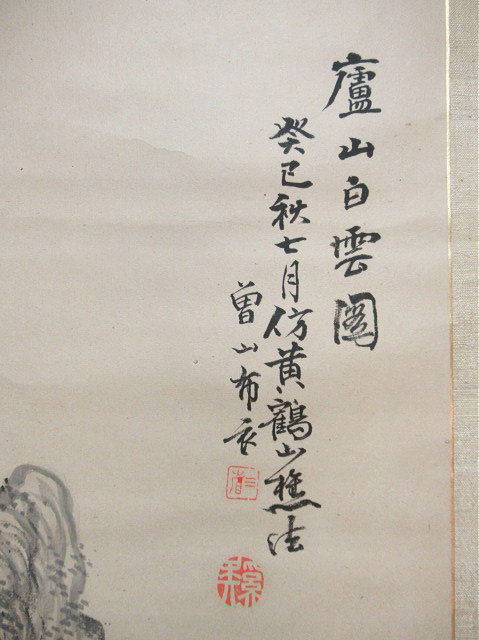 廬山白雲圖
癸巳秋七月仿黄鶴山樵法
曽山布衣